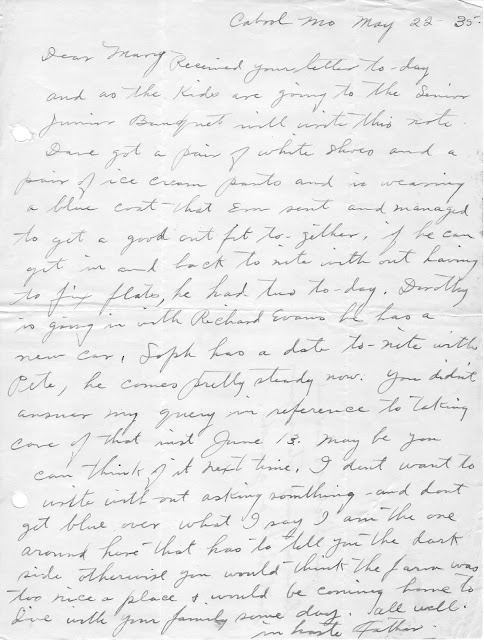 Cabool Mo May 22 - 35.
Dear Mary Received your letter to-day
and as the Kids are going to the Senior
Junior Banquet will write this note.
Dave got a pair of white shoes and a
pair of ice cream pants and is wearing
a blue coat that Em sent and managed
to get a good out fit to-gether, if he can
get in and back to nite with out having
to fix flats, he had two to-day. Dorothy
is going in with Richard Evans he has a
new car, Soph has a date to-nite with
Pete, he comes pretty steady now. You didn't
answer my query in reference to taking
care of that int June 13. may be you
can think of it next time. I dont want to
write with out asking somthing - and dont
get blue over what I say I am the one
around here that has to tell you the dark
side otherwise you would think the farm was
too nice a place & would be coming home to
live with your family some day. all well.
in haste Father.